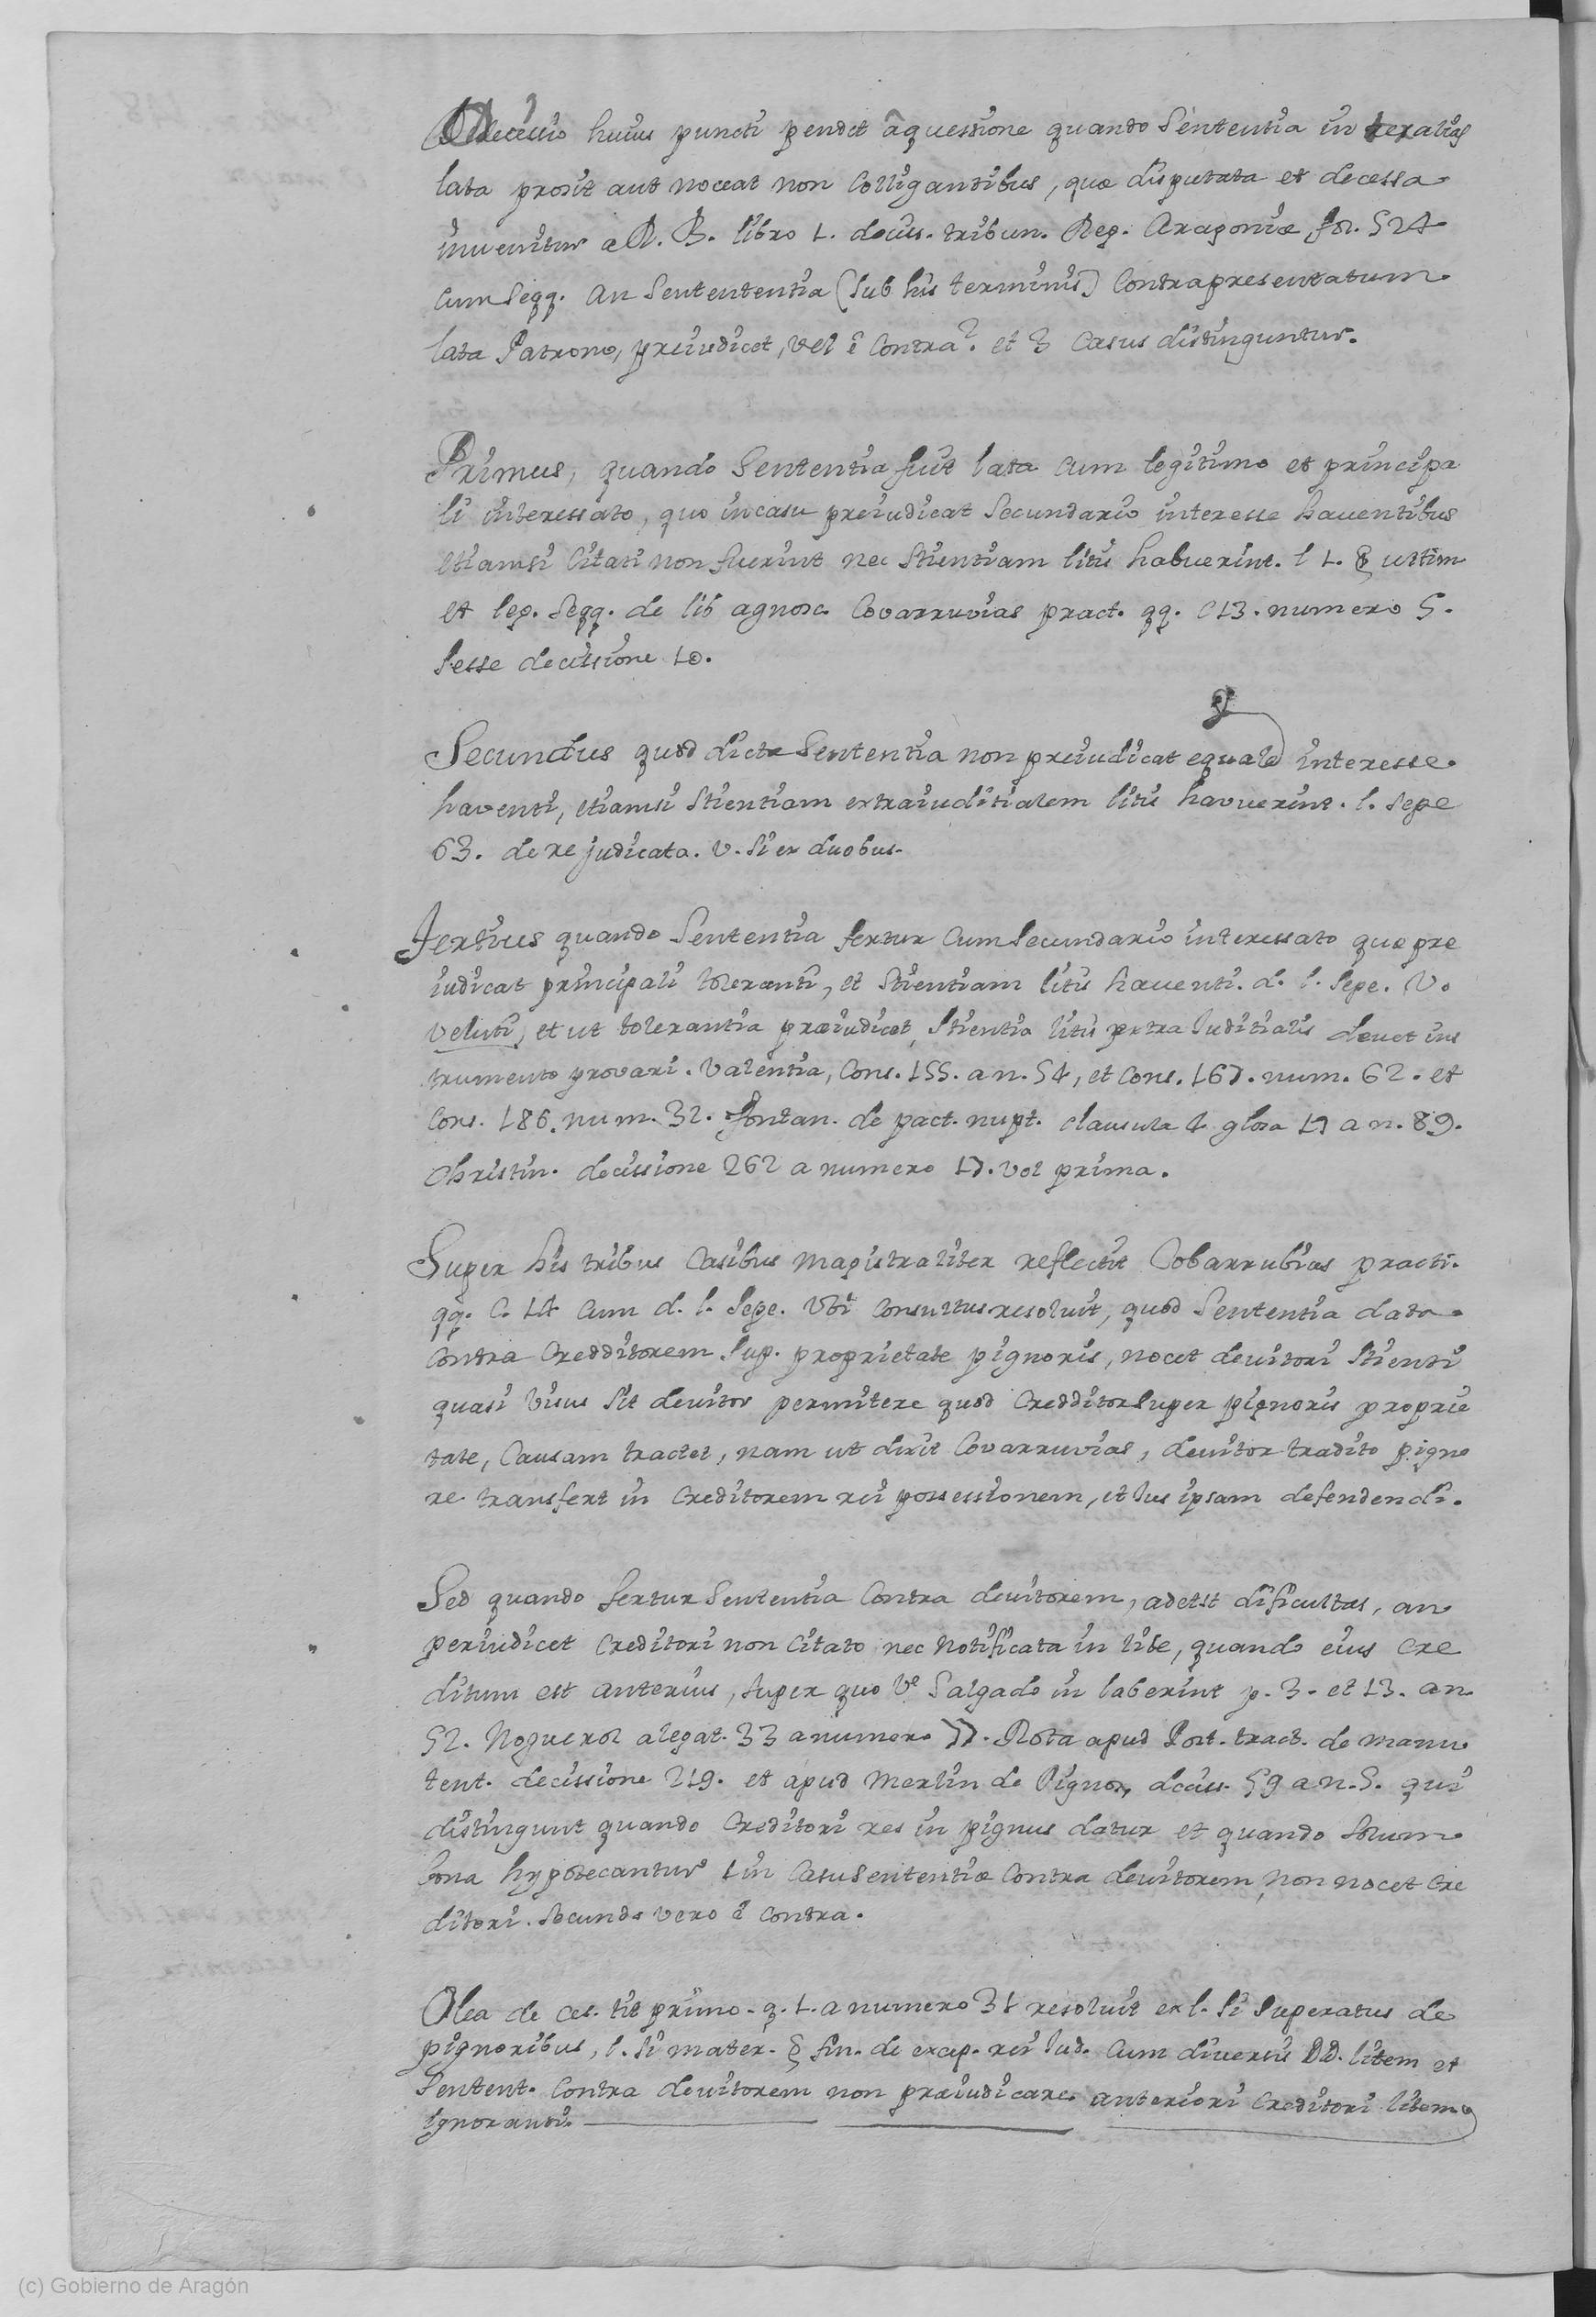 Decissio huius puncti pendet â quessione quando Sententia in ter alios
lata prosit aut noceat non Colligantibus, quæ disputata et decessa
invenitur a D. B. libro 1. decis. tribun. Reg. Aragoniæ, fol. 524
cum seqq. An Sentententia (sub his terminis) Contrapresentatum
lata Patrono, preiudicet, vel è Contra? et 3 Casus distinguntur.
Primus, quando Sententia fuit lata cum legitimo et principa
li interessato, quo incasu preiudicat Secundario interesse haventibus
etiamsi Citati non fuerint nec Stientiam litis habuerint. l 1. § ultim
et leg. seqq. de lib agnosc. Covarruvias pract. qq. C 13. numero 5.
Sesse decissione 10.
Secundus quod dicta Sententia non preiudicat equale interesse
haventi, etiamsi Stientiam extraiuditialem litis havuerint. l. Sepe
63. de re judicata. v. Si ex duobus.
Tertius quando Sententia fertur Cum Secundario interessato quæ pre
iudicat principali toleranti, et Stientiam litis haventi. d. l. Sepe. V.
veluti, et ut tolerantia præiudicet, Stientia litis extra Iuditialis devet ins
trumento provari. Valentia, Cons. 155. a n. 54, et Cons. 167. num. 62. et
Cons. 186. num. 32. Fontan. de pact. nupt. clausula 4 glosa 19 a n. 89.
Christin. decissione 262 a numero 17. vol prima.
Super his tribus Casibus magistraliter reflectit Cobarrubias practi.
qq. C. 14 cum d. l. Sepe. Vbi Consultus resoluit, quod Sententia data
Contra Credditorem Sup. proprietate pignoris, nocet devitori Stienti
quasi visus Sit devitor permitere quod Credditor Super pignoris proprie
tate, Causam tractet, nam ut dixit Covarruvias, devitor tradito pigno
re transfert in Creditorem rei possessionem, et Ius ipsam defendendi.
Sed quando fertur Sententia Contra devitorem, adetst dificultas, an
periudicet Creditori non Citato nec Notificata in lite, quando eius Cre
ditum est anterius, super quo Ve Salgado in laberint p. 3. et 13. an.
52. Noguerol alegat. 33 a numero 77. Rota apud Post. tract. de manu
tent. decissione 219. et apud Merlin de Pignor, decis. 59 a n. 5. qui
distingunt quando Creditori res in pignus datur et quando Solum
bona hypotecantur 1 in Casu Sententiæ Contra devitorem non nocet Cre
ditori. Secundo vero è contra.
Olea de ces. tit primo. q. 1. a numero 31 resoluit ex l. Si Superatus de
pignoribus, l. Si mater. § fin. de excep. rei Iud. Cum diversis DD. litem et
Sentent. Contra devitorem non præiudicare anteriori Creditori litem
ignoranti.
(c) Gobierno de Aragón